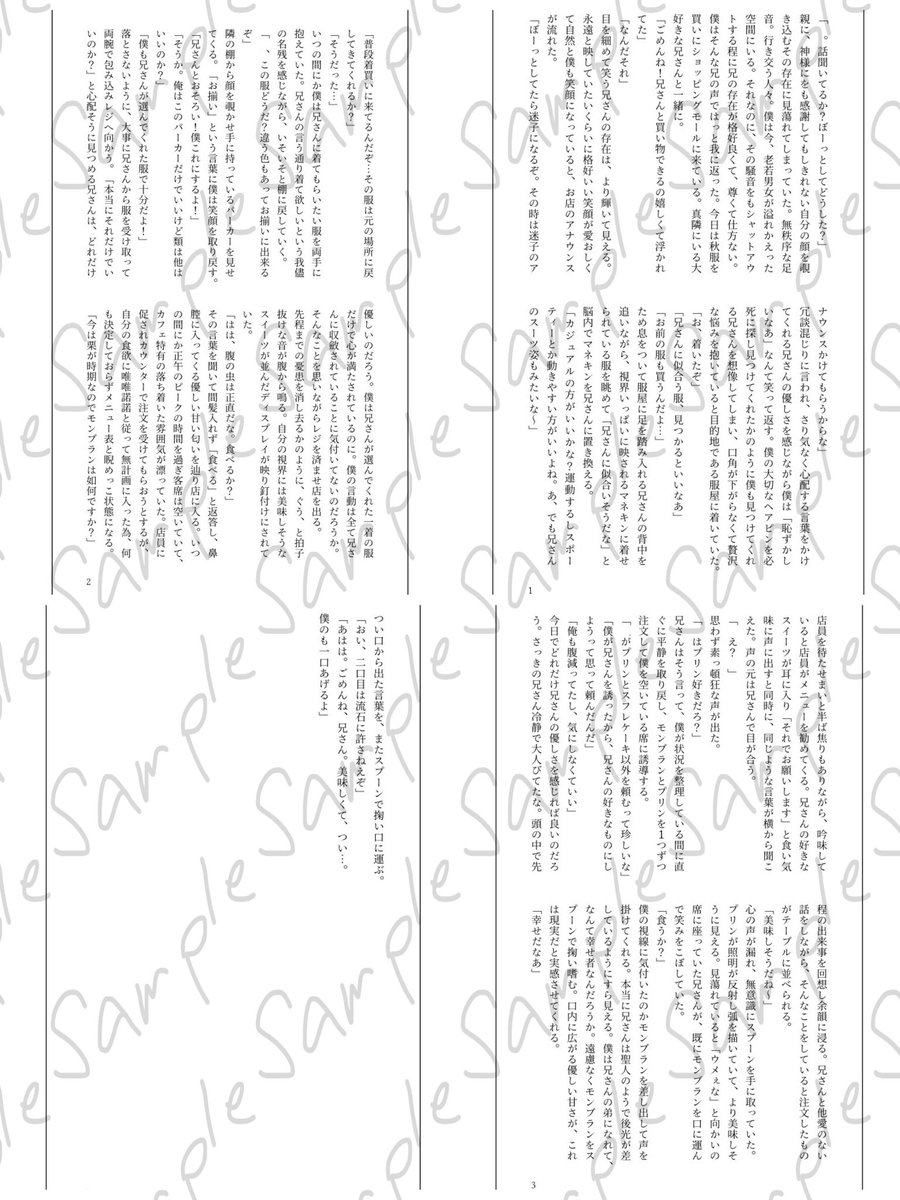 「　。話聞いてるか？ぼーっとしてどうした？」
親に、神様にをも感謝してもしきれない自分の顔を覗
き込むその存在に見蕩れてしまっていた。無秩序な足
音。行き交う人々。僕は今、老若男女が溢れかえった
空間にいる。それなのに、その騒音をもシャットアウ
トする程に兄の存在が格好良くて、尊くて仕方ない。
僕はそんな兄の声ではっと我に返った。今日は秋服を
買いにショッピングモールに来ている。真隣にいる大
好きな兄さんと一緒に。
「ごめんね！兄さんと買い物できるの嬉しくて浮かれ
てた」
「なんだそれ」
目を細めて笑う兄さんの存在は、より輝いて見える。
永遠と映していたいくらいに格好いい笑顔が愛おしく
て自然と僕も笑顔になっていると、お店のアナウンス
が流れた。
「ぼーっとしてたら迷子になるぞ。その時は迷子のア
ナウンスかけてもらうからな」
冗談混じりに言われ、さり気なく心配する言葉をかけ
てくれる兄さんの優しさを感じながら僕は「恥ずかし
いなあ」なんて笑って返す。僕の大切なヘアピンを必
死に探し見つけてくれたかのように僕も見つけてくれ
る兄さんを想像してしまい、口角が下がらなくて贅沢
な悩みを抱いていると目的地である服屋に着いていた。
「お、着いたぞ」
「兄さんに似合う服、見つかるといいなあ」
「お前の服も買うんだよ…」
ため息をついて服屋に足を踏み入れる兄さんの背中を
追いながら、視界いっぱいに映されるマネキンに着せ
られている服を眺めて「兄さんに似合いそうだな」と
脳内でマネキンを兄さんに置き換える。
「カジュアルの方がいいかな？運動するしスポー
ティーとか動きやすい方がいいよね。あ、でも兄さん
のスーツ姿もみたいな〜」
1
「普段着買いに来てるんだぞ…その服は元の場所に戻
してきてくれるか？」
「そうだった…」
いつの間にか僕は兄さんに着てもらいたい服を両手に
抱えていた。兄さんの言う通り着て欲しいという我儘
の名残を感じながら、いそいそと棚に戻していく。
「　、この服どうだ？違う色もあってお揃いに出来る
ぞ」
隣の棚から顔を覗かせ手に持っているパーカーを見せ
てくる。「お揃い」という言葉に僕は笑顔を取り戻す。
「兄さんとおそろい！僕これにするよ！」
「そうか。俺はこのパーカーだけでいいけど類は他は
いいのか？」
「僕も兄さんが選んでくれた服で十分だよ！」
落とさないように、大事に兄さんから服を受け取って
両腕で包み込みレジへ向かう。「本当にそれだけでい
いのか？」と心配そうに見つめる兄さんは、どれだけ
優しいのだろう。僕は兄さんが選んでくれた一着の服
だけで心が満たされているのに。僕の言動は全て兄さ
んに収斂されていることに気付いてないのだろうか。
そんなことを思いながらレジを済ませ店を出る。
先程までの憂患を消し去るかのように、ぐう、と拍子
抜けな音が腹から鳴る。自分の視界には美味しそうな
スイーツが並んだディスプレイが映り釘付けにされて
いた。
「はは、腹の虫は正直だな。食べるか？」
その言葉を聞いて間髪入れず「食べる」と返答し、鼻
腔に入ってくる優しい甘い匂いを辿り店に入る。いつ
の間にか正午のピークの時間を過ぎ客席は空いていて、
カフェ特有の落ち着いた雰囲気が漂っていた。店員に
促されカウンターで注文を受けてもらおうとするが、
自分の食欲に唯唯諾諾と従って無計画に入った為、何
も決定しておらずメニュー表と睨めっこ状態になる。
「今は栗が時期なのでモンブランは如何ですか？」
2
店員を待たせまいと半ば焦りもありながら、吟味して
いると店員がメニューを勧めてくる。兄さんの好きな
スイーツが耳に入り「それでお願いします」と食い気
味に声に出すと同時に、同じような言葉が横から聞こ
えた。声の元は兄さんで目が合う。
「　え？　」
思わず素っ頓狂な声が出た。
「　はプリン好きだろ？」
兄さんはそう言って、僕が状況を整理している間に直
ぐに平静を取り戻し、モンブランとプリンを1つずつ
注文して僕を空いている席に誘導する。
「　がプリンとスフレケーキ以外を頼むって珍しいな」
「僕が兄さんを誘ったから、兄さんの好きなものにし
ようって思って頼んだんだ」
「俺も腹減ってたし、気にしなくていい」
今日でどれだけ兄さんの優しさを感じれば良いのだろ
う。さっきの兄さん冷静で大人びてたな。頭の中で先
程の出来事を回想し余韻に浸る。兄さんと他愛のない
話をしながら、そんなことをしていると注文したもの
がテーブルに並べられる。
「美味しそうだね〜」
心の声が漏れ、無意識にスプーンを手に取っていた。
プリンが照明が反射し弧を描いていて、より美味しそ
うに見える。見蕩れていると「ウメぇな」と向かいの
席に座っていた兄さんが、既にモンブランを口に運ん
で笑みをこぼしていた。
「食うか？」
僕の視線に気付いたのかモンブランを差し出して声を
掛けてくれる。本当に兄さんは聖人のようで後光が差
しているようにすら見える。僕は兄さんの弟になれて、
なんて幸せ者なんだろうか。遠慮なくモンブランをス
プーンで掬い嗜む。口内に広がる優しい甘さが、これ
は現実だと実感させてくれる。
「幸せだなあ」
3
つい口から出た言葉を、またスプーンで掬い口に運ぶ。
「おい、二口目は流石に許さねえぞ」
「あはは。ごめんね、兄さん。美味しくて、つい…。
僕のも一口あげるよ」
Sample